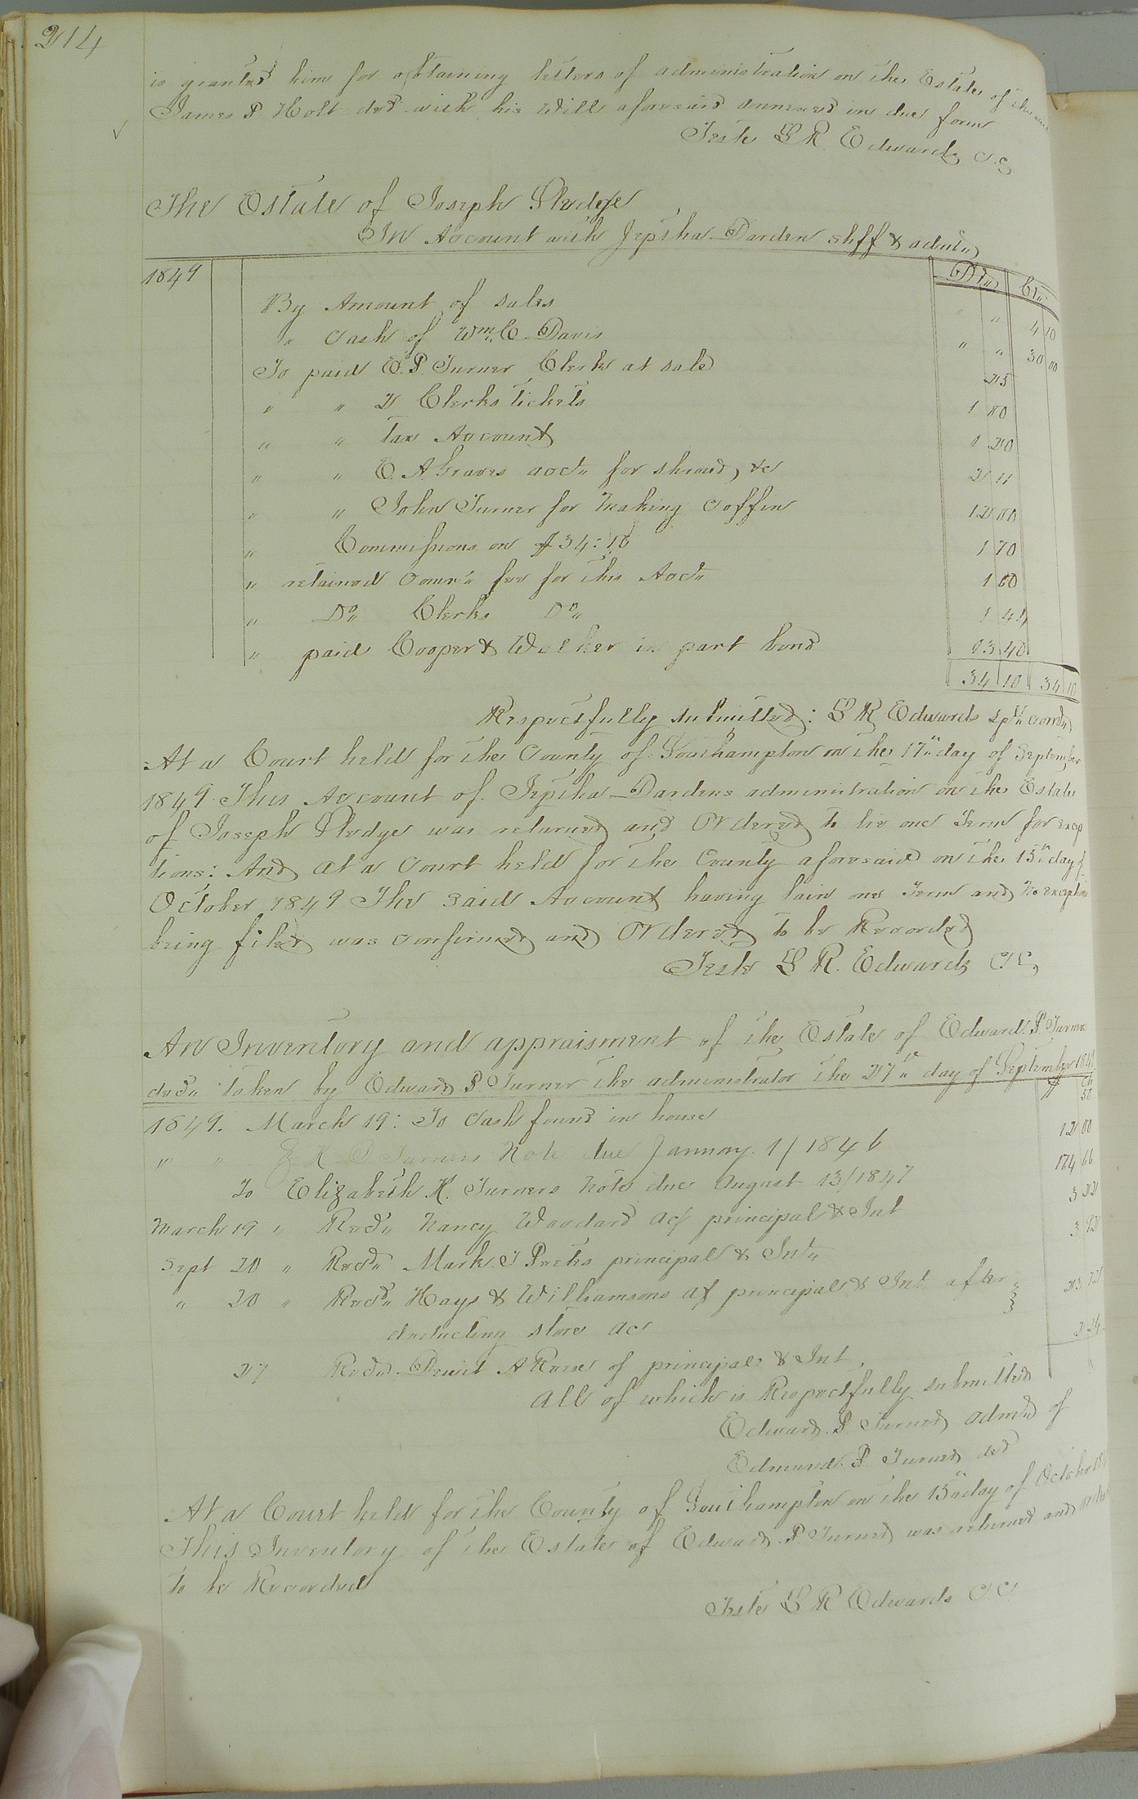 214
is granted him for obtaining letters of administration on the Estate of the said
James P Holt decd with his Will aforesaid annexed in due form
Teste L R Edwards C.C
The Estate of Joseph Pledge
In Account with Jeptha Darden shff & adm.
1849 Drs Crs
By Amount of sales " " 4 10
" Cash of Wm. C Davis " " 30 00
To paid E. P. Turner Clerk at sale 25
" " 2 Clerks tickets
" " Tax Account
" " E. A. Graves acct. for shroud, &c 2 11
" " John Turner for making coffin
" Commissions on $34:10 1 70
" retained Comr. fee for this Acct
" Do Clerks Do
" paid Cooper & Walker in part bond
34 10 34 10
Respectfully submitted: L R Edwards
At a Court held for the County of Southampton on the 17th day of September
1849 This Account of Jeptha Dardens administration on the Estate
of Joseph Pledge was returned and Ordered to lie one Term for excep
tions: And at a Court held for the County aforesaid on the 15th day of
October 1849 The said Account having lain one Term and no exceptions
being filed was confirmed and Ordered to be Recorded
Teste L R. Edwards C C,
An Inventory and appraisment of the Estate of Edward P Turner
decd. taken by Edward P Turner the administrator the 27th day of September 1849
1849. March 19: To Cash found in house 50
" " Turners Note due January 1/1846 12 00
To Elizabeth H. Turners Note due August 13/1847 174 66
March 19 " Recd. Nancy Woodard of principal & Int
Sept 20 " Recd. Mark principal & Int.
" 20 " Recd. Hays & Williamsons of principal & Int after
deducting store ac
27 Recd. A of principal & Int.
All of which is Respectfully submitted
Edward. P Turner adm. of
Edmund. P Turner decd
At a Court held for the County of Southampton on the 15th day of October
This Inventory of the Estate of Edward. P. Turner was returned and
to be Recorded
Teste L R Edwards C C